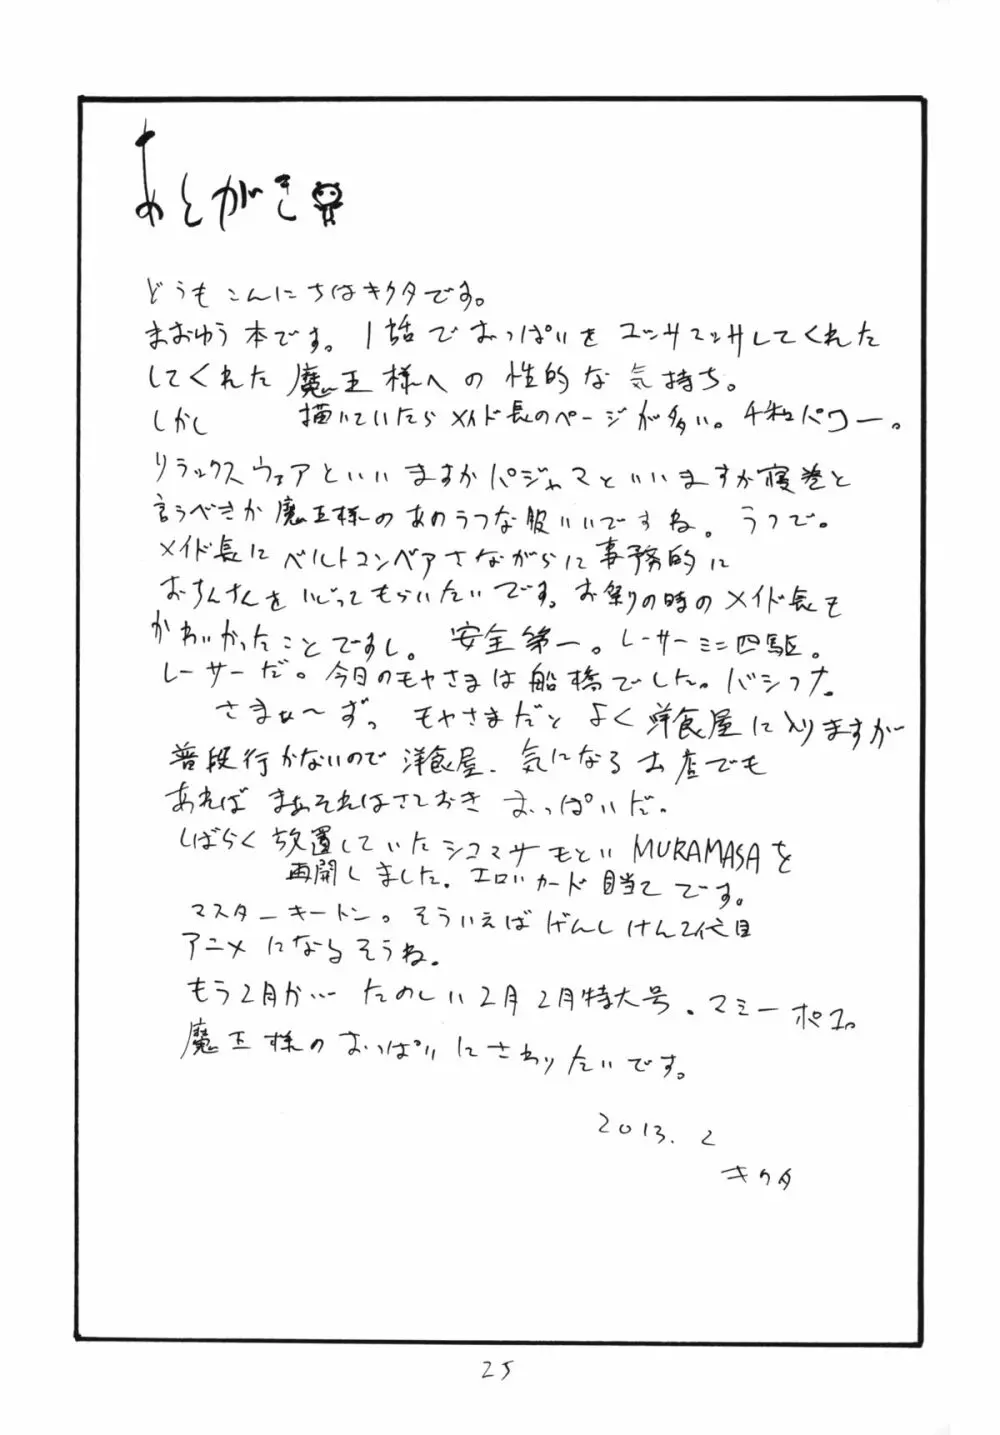 あとがき
どうもこんにちはキクタです。
まおゆう本です。1話でおっぱいをユッサユッサしてくれた
してくれた魔王様への性的な気持ち。
しかし 描いていたらメイド長のページが多い。千和パワー。
リラックスウェアといいますかパジャマといいますか寝巻と
言うべきか魔王様のあのうつな服いいですね。うつで。
メイド長にベルトコンベアさながらに事務的に
おちんちんをいじってもらいたいです。お祭りの時のメイド長も
かわいかったことですし。安全第一。レーサーミニ四駆。
レーサーだ。今日のモヤさまは船橋でした。バシフナ。
さまぁ〜ずっ モヤさまだと よく洋食屋に入りますが
普段行かないので洋食屋、気になるお店でも
あれば まぁそれはさておき おっぱいだ。
しばらく放置していたシコマサもといMURAMASAを
再開しました。エロいカード目当てです。
マスターキートン。そういえばげんしけん2代目
アニメになるそうね。
もう2月か… たのしい2月2月特大号。マミーポコ。
魔王様のおっぱいにさわりたいです。
2013.2
キクタ
25